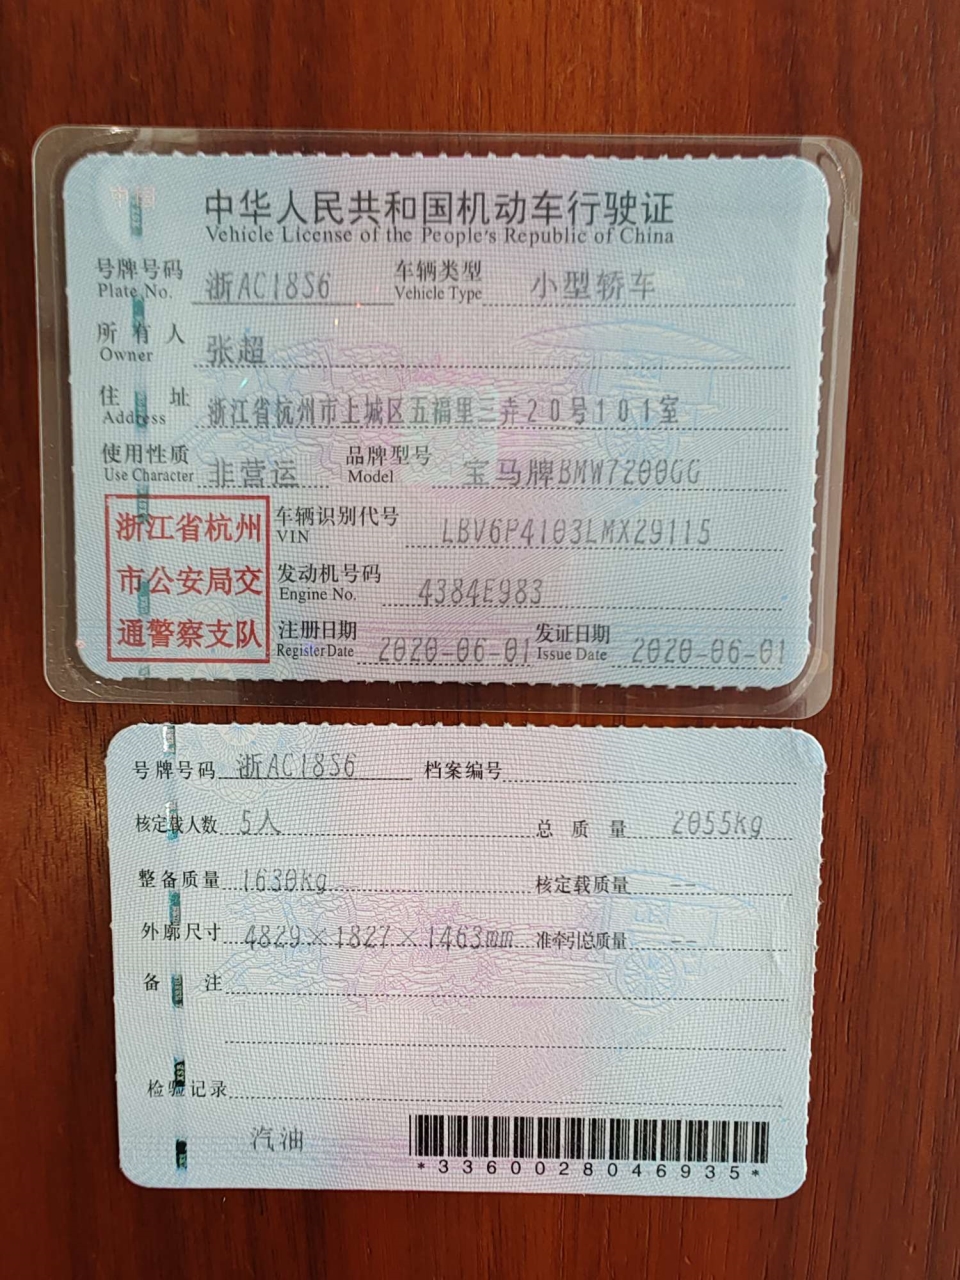 中华人民共和国机动车行驶证
Vehicle License of the People's Republic of China
号牌号码 浙AC18S6 车辆类型 小型轿车
Plate No. Vehicle Type
所有人 张超
Owner
住址 浙江省杭州市上城区五福里三弄20号101室
Address
使用性质 非营运 品牌型号 宝马牌BMW7200GG
Use Character Model
浙江省杭州
市公安局交
通警察支队
车辆识别代号 LBV6P4103LMX29115
VIN
发动机号码 4384E983
Engine No.
注册日期 2020-06-01 发证日期 2020-06-01
Register Date Issue Date
号牌号码 浙AC18S6 档案编号
核定载人数 5人 总质量 2055kg
整备质量 1630kg 核定载质量 --
外廓尺寸 4829×1827×1463mm 准牵引总质量 --
备注
检验记录
汽油
*3360028046935*